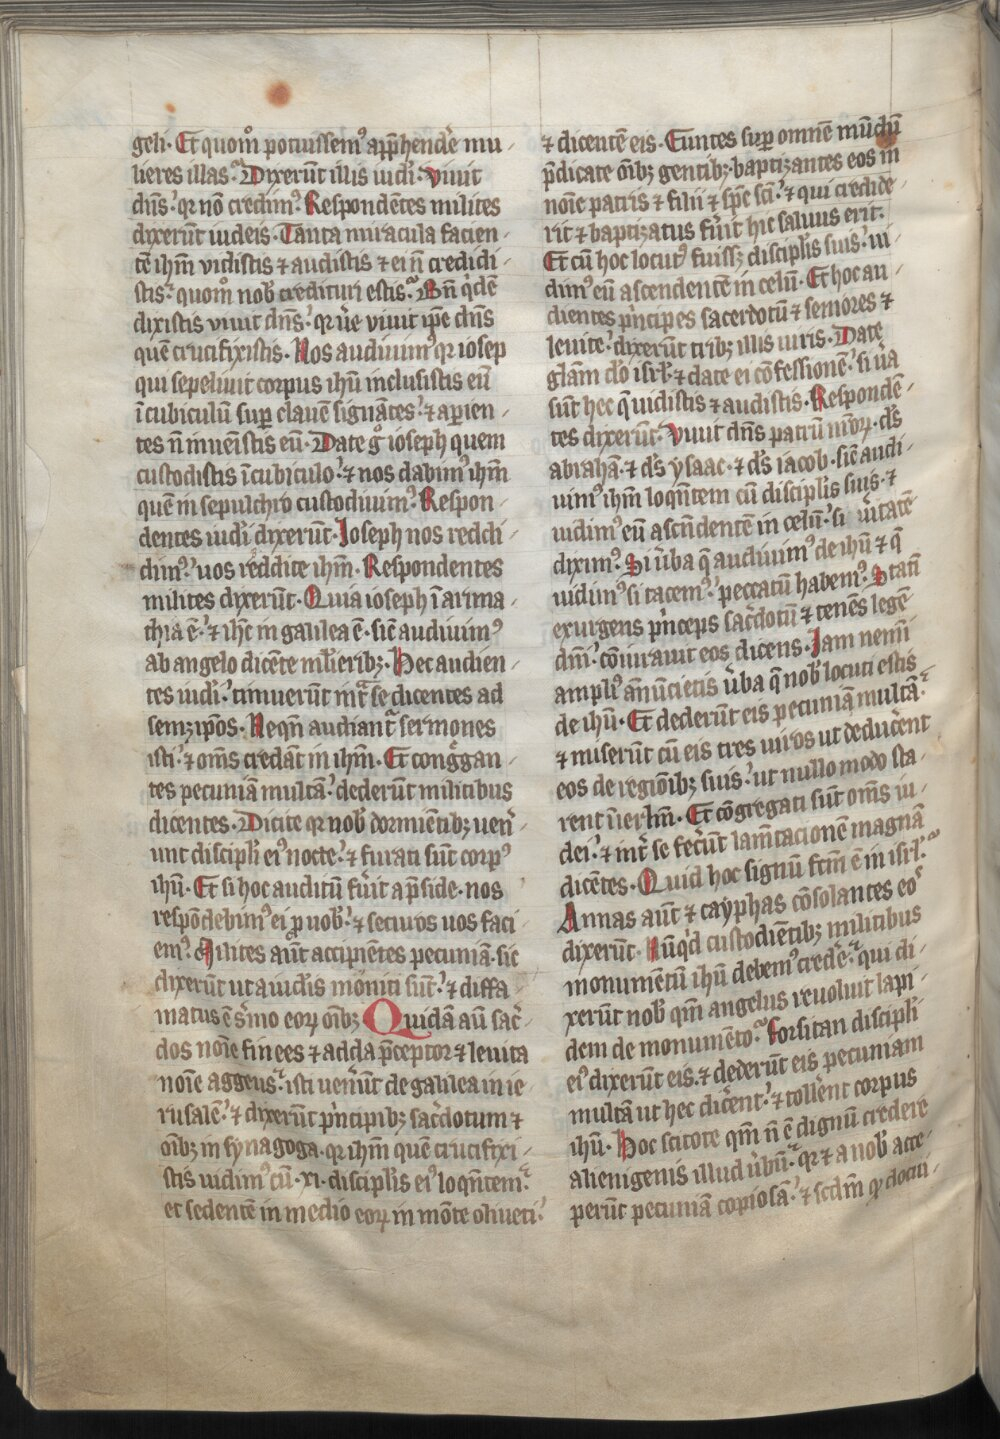 geli. Et quom̊ potuissem⁹ app̃hendẽ mu-
lieres illas. Dixerũt illis iudi. viuit
dñs. qr nõ credim⁹. Respondẽtes milites
dixerũt iudeis. Tanta miracula facien-
tẽ ihm̃ vidistis ⁊ audistis ⁊ ei ñ credidi-
stis. quom̊ nob̃ credituri estis. Bñ q̇dẽ
dixistis viuit dñs. qr ũe viuit ip̃e dñs
quẽ crucifixistis. Nos audiuim⁹ qr iosep
qui sepeliuit corpus ihũ inclusistis eũ
ĩ cubiculũ sup clauẽ signãtes. ⁊ apien-
tes ñ inuẽistis eũ. Date g̊ ioseph quem
custodistis ĩ cubiculo. ⁊ nos dabim⁹ ihm̃
quẽ in sepulchro custodiuim⁹. Respon-
dentes iudi dixerũt. Ioseph nos reddi-
dim⁹. uos reddite ihm̃. Respondentes
milites dixerũt. Quia ioseph ĩ arima-
thia ẽ. ⁊ ihc̃ in galilea ẽ. sic̃ audiuim⁹
ab angelo dicẽte mlierib⁊. Hec audien-
tes iudi. timuerũt int̃ se dicentes ad
sem⁊ipõs. Neqñ audiant̃ sermones
isti. ⁊ om̃s credãt in ihm̃. Et cong̃gan-
tes pecuniã multã. dederũt militibus
dicentes. Dicite qr nob̃ dormiẽtib⁊ uen̾-
unt discipli ei⁹ nocte. ⁊ furati sũt corp⁹
ihũ. Et si hoc auditũ fũit a p̃side. nos
respõdebim⁹ ei p uob̃. ⁊ securos uos faci-
em⁹. Milites aũt accipiẽtes pecuniã. sic
dixerũt ut a iud̃is moniti sũt. ⁊ diffa-
matus ẽ s̾mo eoꝝ oĩb⁊ Quidã aũ sac̾-
dos noĩe finees ⁊ adda p̃ceptor ⁊ leuita
noĩe aggeus. isti uen̾ũt de galilea in ie-
rusalẽ. ⁊ dixerũt p̃ncipib⁊ sac̾dotum ⁊
oĩb⁊ in synagoga. qr ihm̃ quẽ crucifixi-
stis uidim⁹ cũ .xi. discipl̃is ei⁹ loqñtem.
et sedentẽ in medio eoꝝ in mõte oliueti.
⁊ dicentẽ eis. Euntes sup omnẽ mũdũ
p̃dicate oĩb⁊ gentib⁊. baptizantes eos in
noĩe patris ⁊ filii ⁊ sp̃c sc̃i. ⁊ qui credide-
rit ⁊ baptizatus fũit hic saluus erit.
Et cũ hoc locut⁹ fuiss⁊ discipl̃is suis. ui-
dim⁹ eũ ascendentẽ in celũ. Et hoc au-
dientes p̃ncipes sacerdotũ ⁊ seniores ⁊
leuite. dixerũt trib⁊ illis uiris. Date
gl̃am dõ isrl̃. ⁊ date ei cõfessionẽ. si ũa
sũt hec q̃ uidistis ⁊ audistis. Respondẽ-
tes dixerũt. Viuit dñs patrũ nr̃oꝝ. ds̃
abrahã. ⁊ ds̃ ysaac. ⁊ ds̃ iacob. sic̃ audi-
uim⁹ ihm̃ loqñtem cũ discipl̃is suis. ⁊
uidim⁹ eũ asc̃ndentẽ in celũ. si ũitatẽ
dixim⁹. Si ũba q̃ audiuim⁹ de ihũ ⁊ q̃
uidim⁹ si tacem⁹. peccatũ habem⁹. Statĩ
exurgens p̃nceps sac̾dotũ ⁊ tenẽs legẽ
dm̃i. cõiurauit eos dicens. Iam nemĩ
ampli⁹ anũcietis ũba q̃ nob̃ locuti estis
de ihũ. Et dederũt eis pecuniã multã.
⁊ miserũt cũ eis tres uiros ut deduc̾ent
eos de regiõib⁊ suis. ut nullo modo sta-
rent ĩ ierlm̃. Et cõgregati sũt om̃s iu-
dei. ⁊ int̃ se fec̾ũt lam̃tacionẽ magnã
dicẽtes. Quid hoc signũ fc̃m ẽ in isrl̃.
Annas aũt ⁊ cayphas cõsolantes eos
dixerũt. Nũq̇d custodiẽtib⁊ militibus
monumẽtũ ihũ debem⁹ crede̾. qui di-
xerũt nob̃ qm̃ angelus reuoluit lapi-
dem de monumẽto. Forsitan discipli
ei⁹ dixerũt eis. ⁊ dederũt eis pecuniam
multã ut hec dic̾ent. ⁊ tollẽnt corpus
ihũ. Hoc scitote qm̃ ñ ẽ dignũ credere
alienigenis illud ũbũ. qr ⁊ a nob̃ acce-
perũt pecuniã copiosã. ⁊ scdm̃ ꝙ docui-